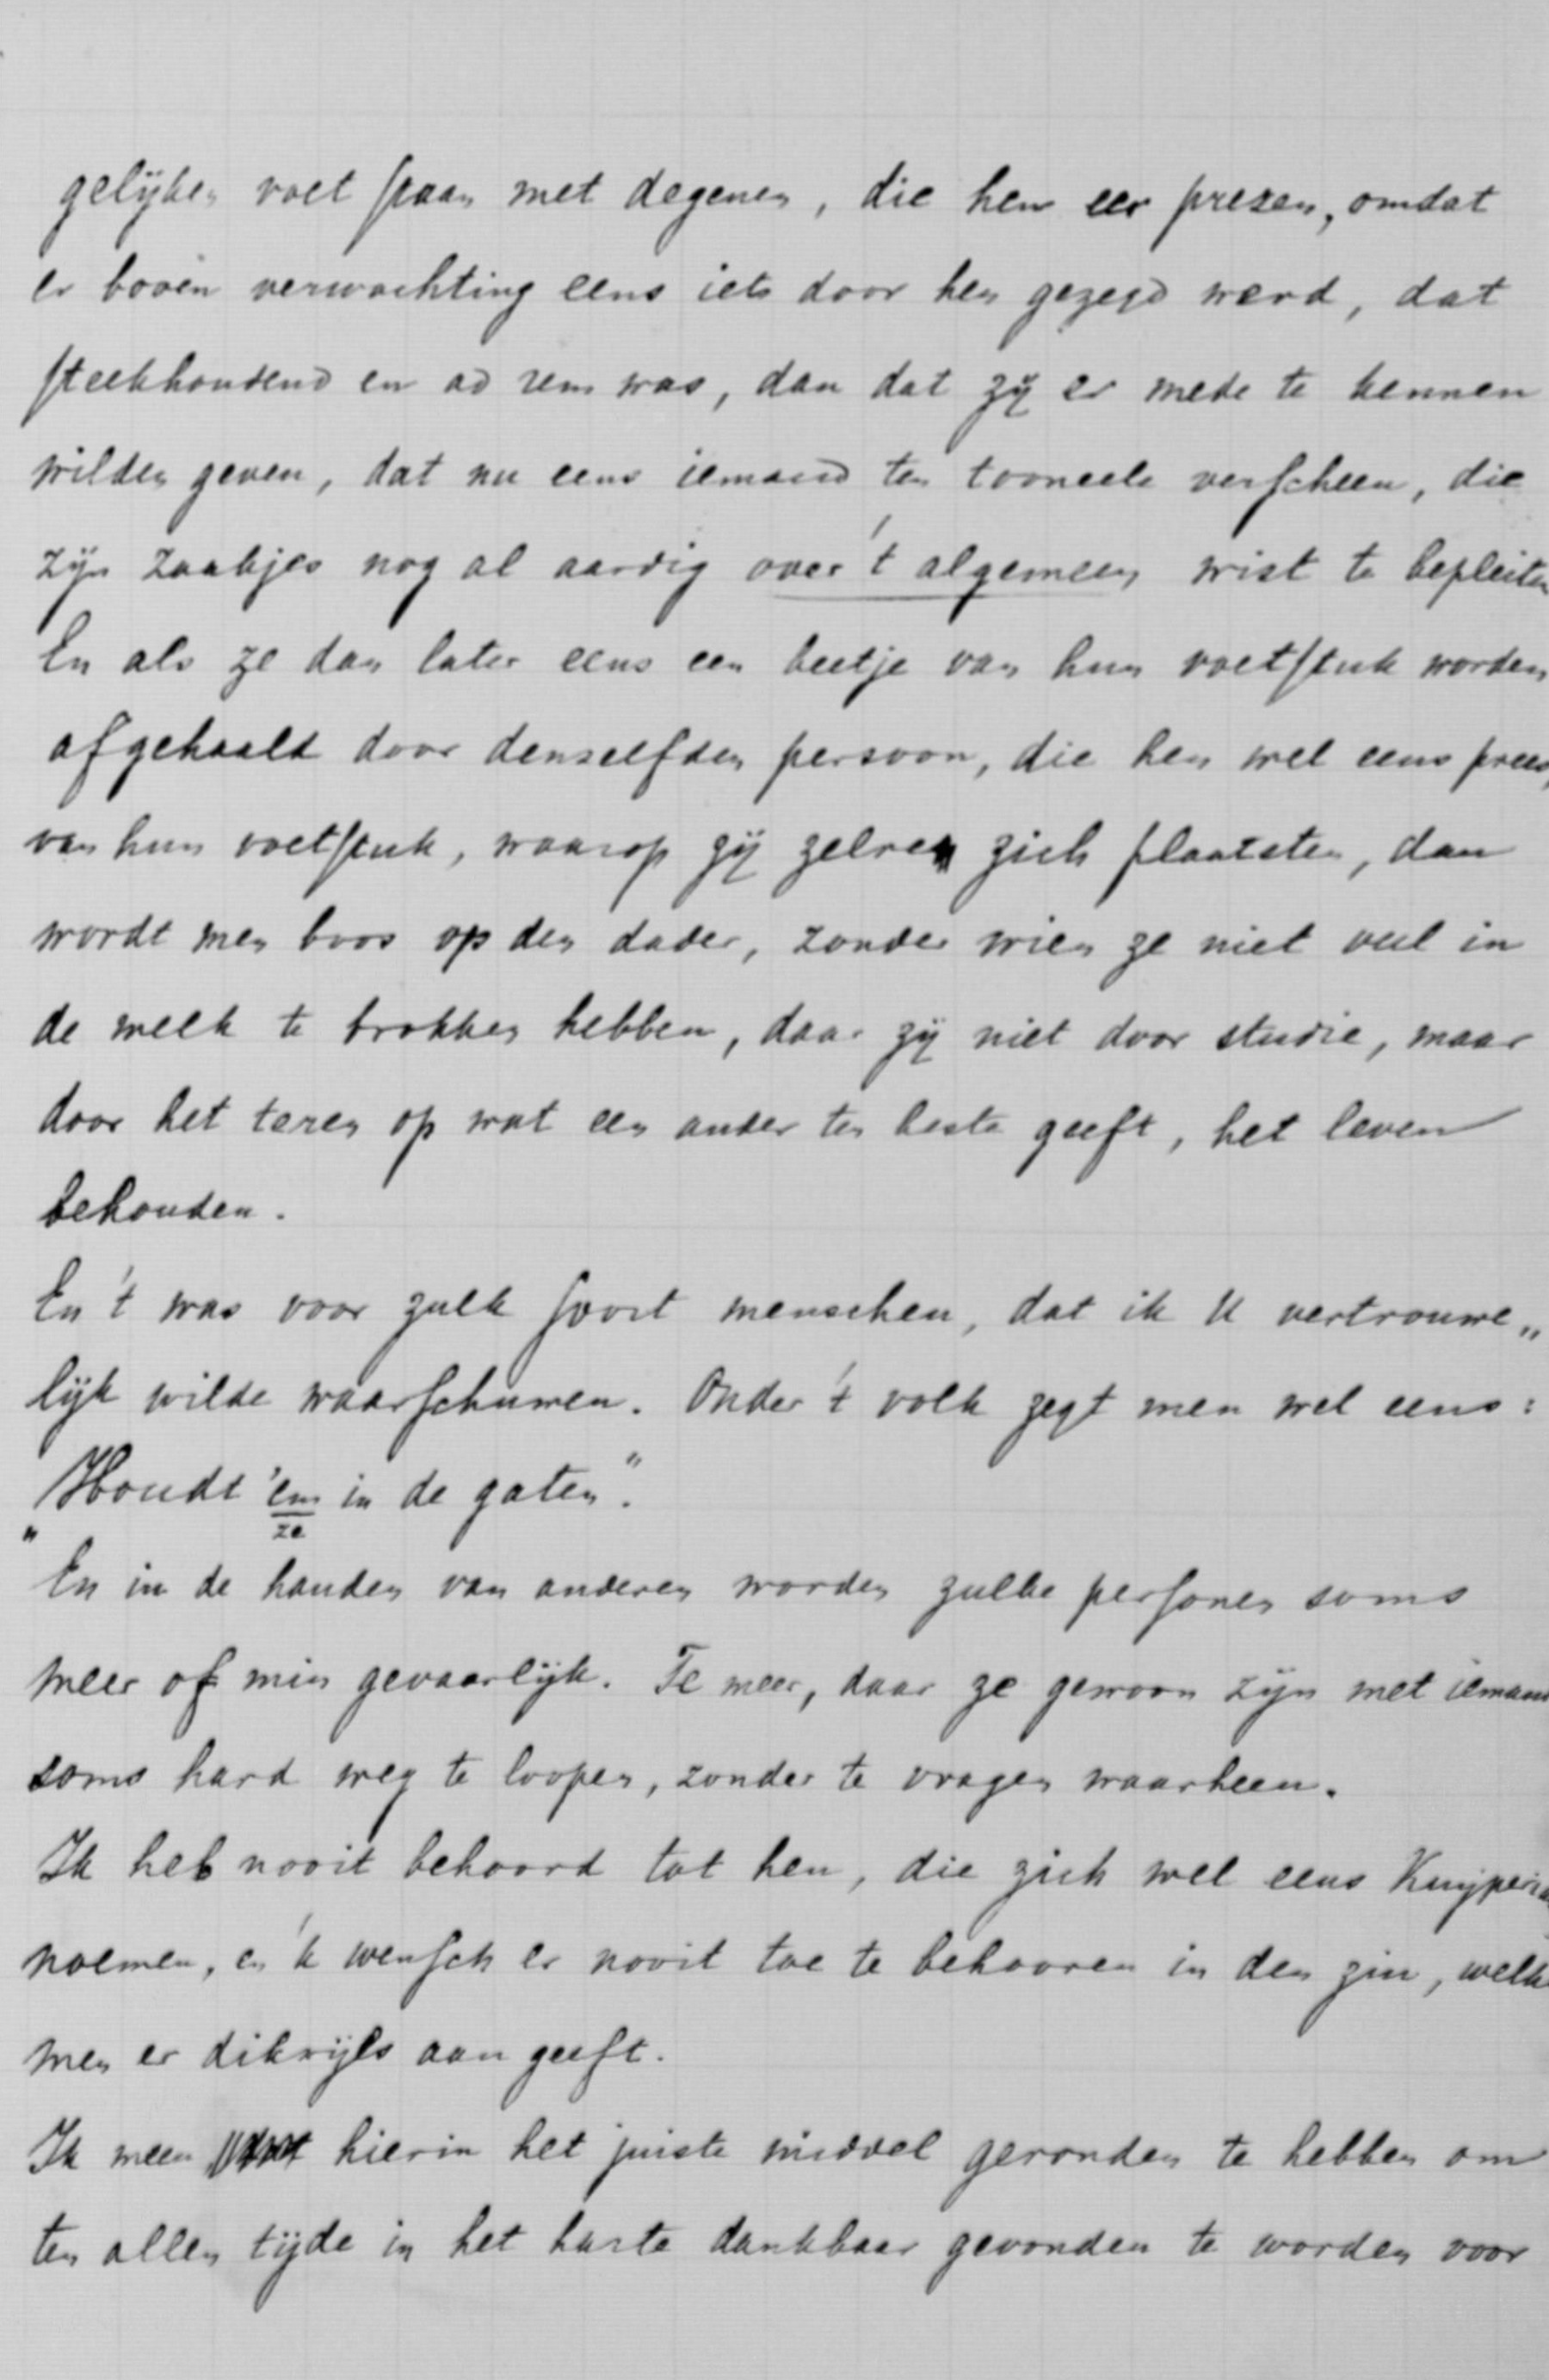 gelijken voet staan met degenen, die hen eer prezen, omdat
er boven verwachting eens iets door hen gezegd werd, dat
steekhoudend en ad rem was, dan dat zij er mede te kennen
wilden geven, dat nu eens iemand ten tooneele verscheen, die
zijn zaakjes nog al aardig over 't algemeen wist te bepleiten
En als ze dan later eens een beetje van hun voetstuk worden
afgehaald door denzelfden persoon, die hen wel eens prees,
van hun voetstuk, waarop zij zelven zich plaatsten, dan
wordt men boos op den dader, zonder wien ze niet veel in
de melk te brokken hebben, daar zij niet door studie, maar
door het teren op wat een ander ten beste geeft, het leven
behouden.
En 't was voor zulk soort menschen, dat ik U vertrouwe„
lijk wilde waarschuwen. Onder 't volk zegt men wel eens:
„Houdt 'em in de gaten".
ze
En in de handen van anderen worden zulke personen soms
meer of min gevaarlijk. Te meer, daar ze gewoon zijn met iemand
soms hard weg te loopen, zonder te vragen waarheen.
Ik heb nooit behoord tot hen, die zich wel eens
noemen, en 'k wensch er nooit toe te behooren in den zin, welke
men er dikwijls aan geeft.
Ik meen hierin het juiste middel gevonden te hebben om
ten allen tijde in het harte dankbaar gevonden te worden voor